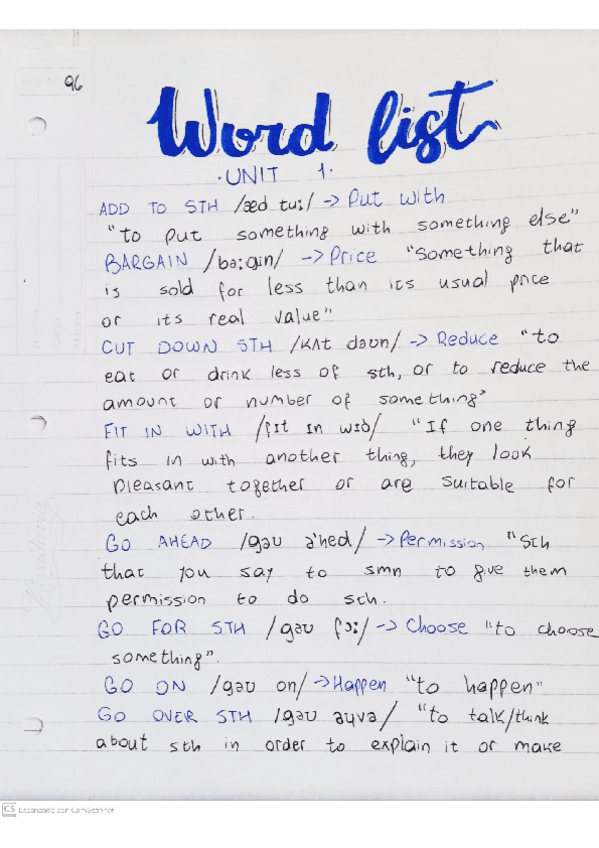 96
Word list
·UNIT 1·
ADD TO STH /æd tu:/ -> Put with
"to put something with something else"
BARGAIN /bə:gɪn/ -> Price "Something that
is sold for less than its usual price
or its real value"
CUT DOWN STH /kʌt daʊn/ -> Reduce "to
eat or drink less of sth, or to reduce the
amount or number of something"
FIT IN WITH /fɪt ɪn wɪð/ "If one thing
fits in with another thing, they look
pleasant together or are suitable for
each other.
GO AHEAD /gəʊ ə'hed/ -> Permission "Sth
that you say to smn to give them
permission to do sth.
GO FOR STH /gəʊ fɔ:/ -> Choose "to choose
something".
GO ON /gəʊ on/ -> Happen "to happen"
GO OVER STH /gəʊ əʊvə/ "to talk/think
about sth in order to explain it or make
CS Escaneado con CamScanner